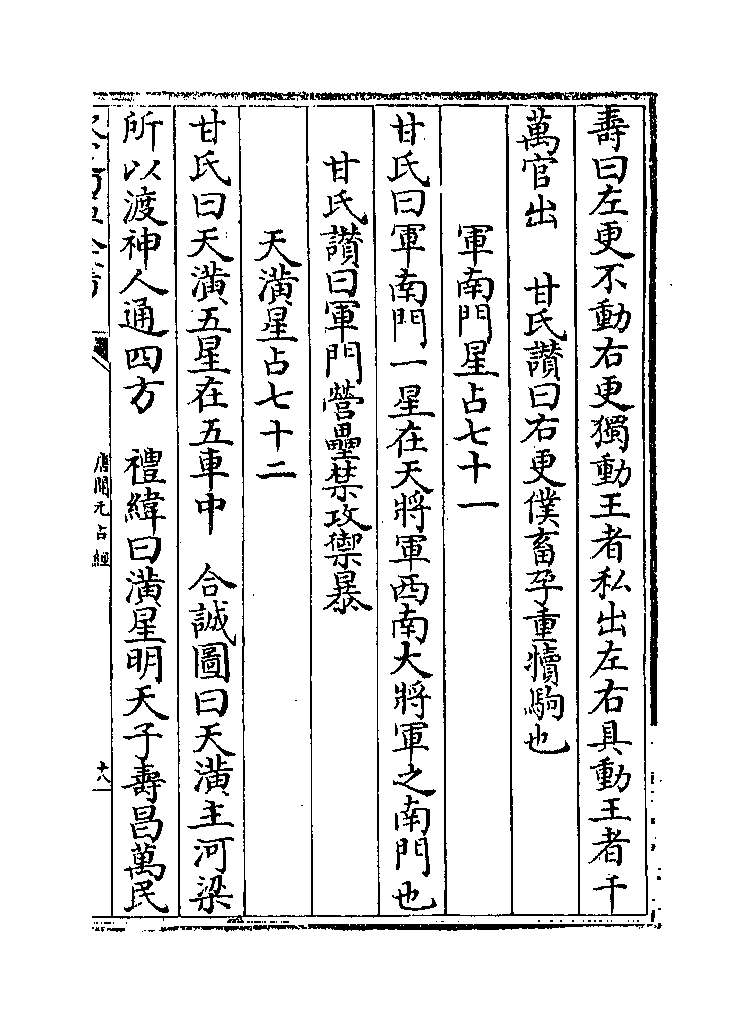 壽曰左更不動右更獨動王者私出左右具動王者千
萬官出　甘氏讚曰右更僕畜孕重犢駒也
軍南門星占七十一
甘氏曰軍南門一星在天將軍西南大將軍之南門也
甘氏讚曰軍門營壘禁攻禦暴
天潢星占七十二
甘氏曰天潢五星在五車中　合誠圖曰天潢主河梁
所以渡神人通四方　禮緯曰潢星明天子壽昌萬民
唐開元占經
十八